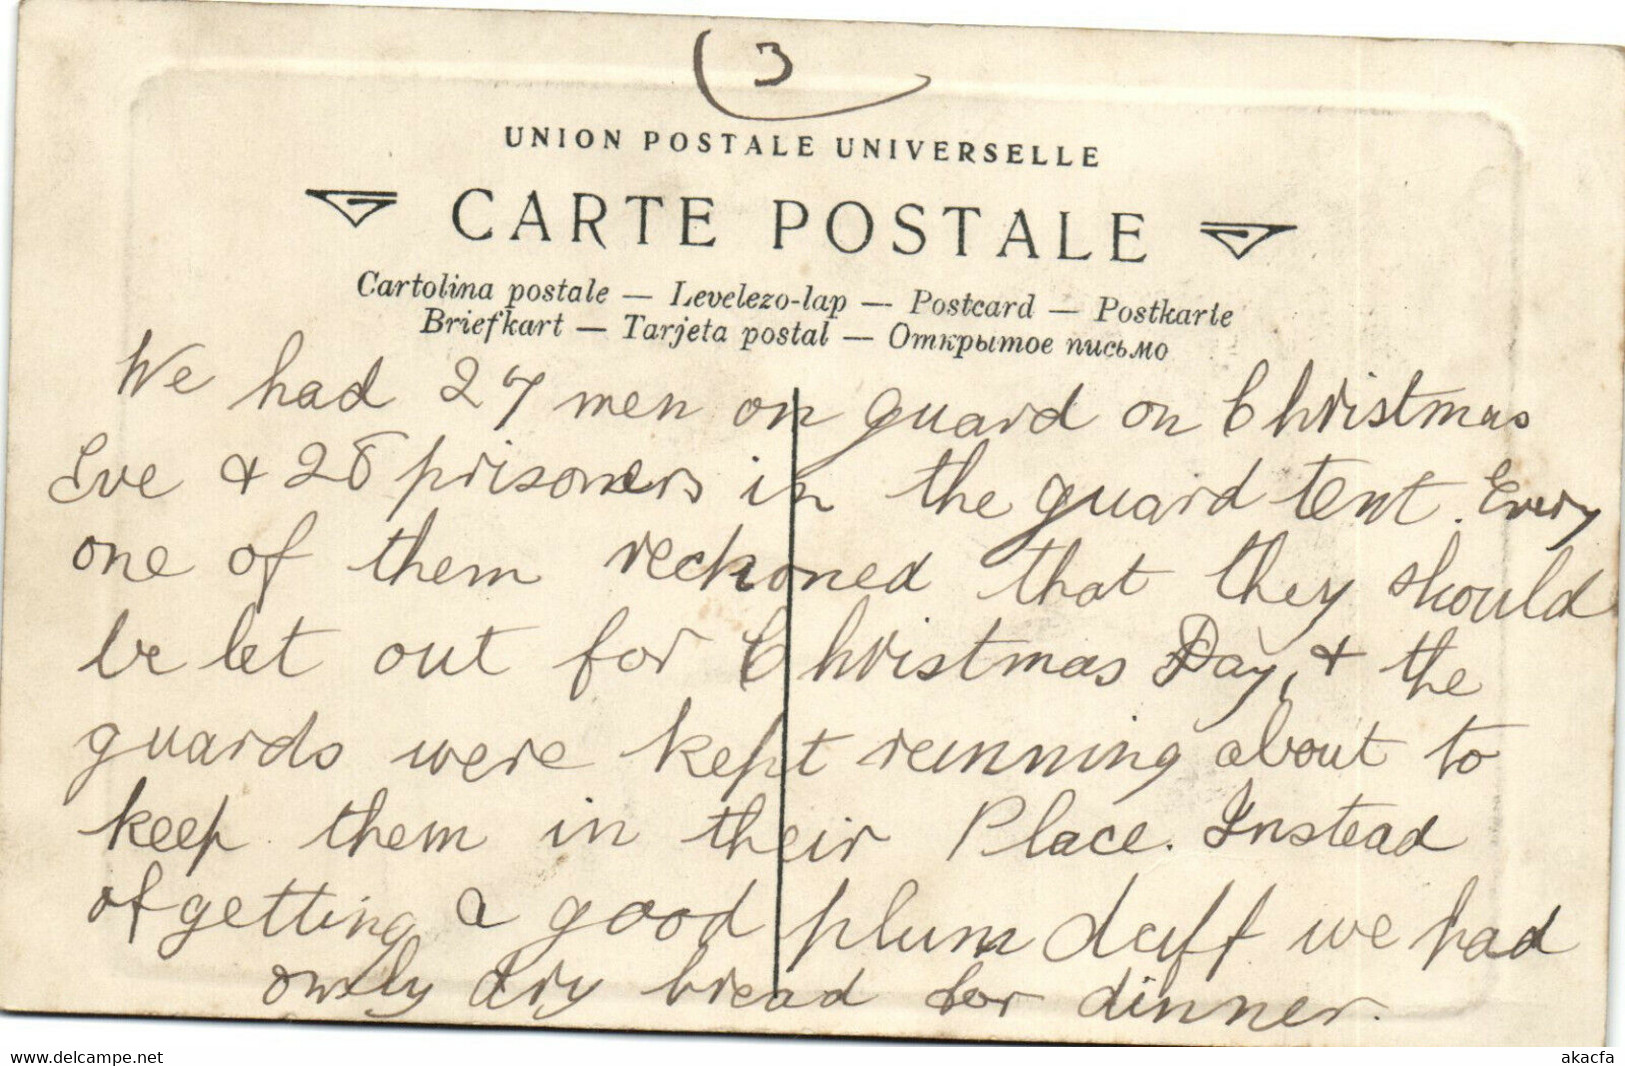 3
UNION POSTALE UNIVERSELLE
CARTE POSTALE
Cartolina postale — Levelezo-lap — Postcard — Postkarte
Briefkart — Tarjeta postal — Открытое письмо
We had 27 men on guard on Christmas
Eve & 28 prisoners in the guard tent. Every
one of them reckoned that they should
be let out for Christmas Day, & the
guards were kept running about to
keep them in their Place. Instead
of getting a good plum duff we had
only dry bread for dinner.
www.delcampe.net
akacfa